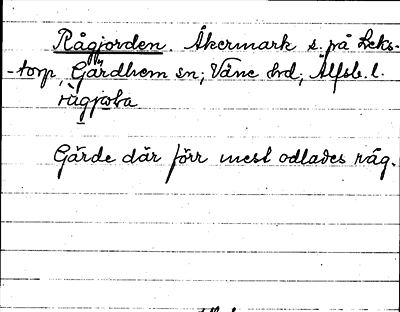 Rågjorden. Åkermark s. på Leks-
-torp, Gärdhem sn; Väne hd; Älfsb. l.
Gärde där förr mest odlades råg.